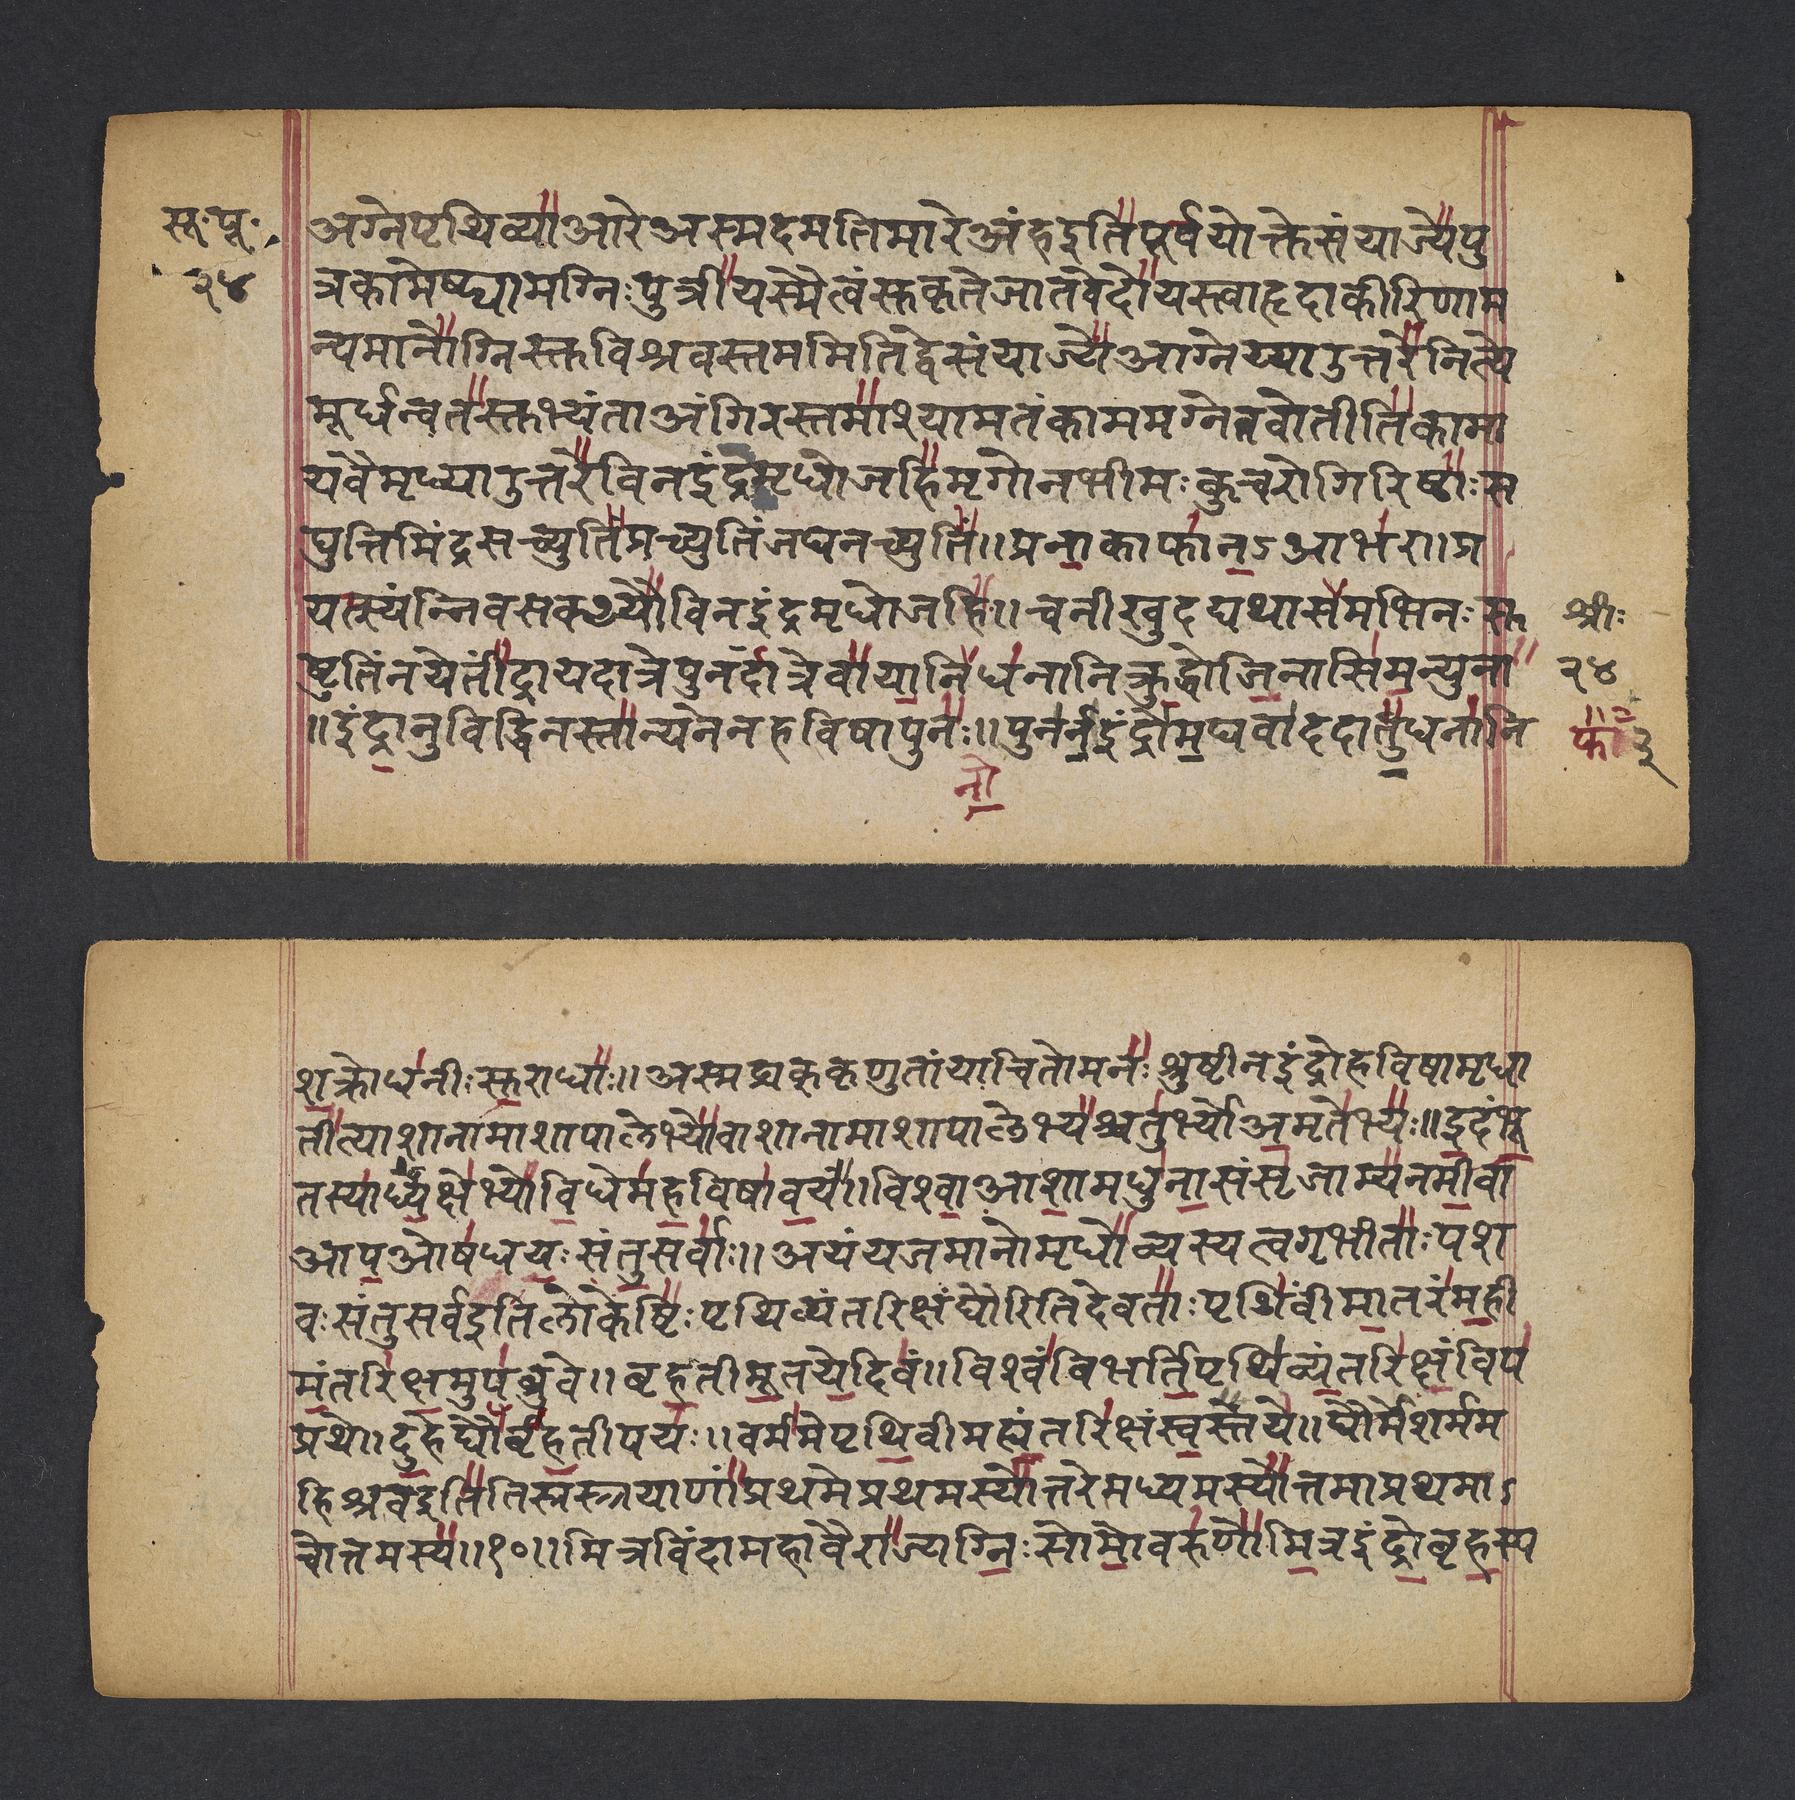 सू. पू.
२४
अग्नेपृथिव्याआरेअस्मदमतिमारेअंहइतिपूर्वयोक्तेसंयाज्येपु
त्रकामेष्ट्यामग्निःपुत्रीयस्मैत्वंसुकृतेजातवेदोयस्त्वाहृदाकीरिणाम
न्यमानोग्निस्तुविश्रवस्तममितिद्वेसंयाज्येआग्नेय्याउत्तरेनित्ये
मूर्धन्वतस्तुभ्यंताअंगिरस्तमाश्यामतंकाममग्नेतवोतीतिकामा
यवैमृध्याउत्तरेविनइंद्रमृधोजहिमृगोनभीमःकुचरोगिरिष्ठाःस
घुत्तिमिंद्रसच्युतिंप्रच्युतिंजघनच्युतिं॥प्रनाकाफानऽआभर॥प्र
यत्स्यंन्निवसक्थ्यौविनइंद्रमृधोजहि॥चनीखुदद्यथासमभिनःसु
ष्टुतिंनयेतींद्रायदात्रेपुनर्दात्रेवायानिधनानिक्रुद्धोजिनासिमन्युना
॥इंद्रानुविद्धिनस्तान्यनेनहविषापुनः॥पुनर्नइंद्रोमघवाददातुधनानि
श्रीः
२४
फा ३
नो
शक्रोधनीःसुराधाः॥अस्मद्र्यक्कृणुतांयाचितोमनःश्रुष्टीनइंद्रोहविषामृधा
तीत्याशानामाशापालेभ्योवाशानामाशापालेभ्यश्चतुर्भ्योअमृतेभ्यः॥इदंभू
तस्याध्यक्षेभ्योविधेमहविषावयं॥विश्वाआशामधुनासंसृजाम्यनमीवा
आपओषधयःसंतुसर्वाः॥अयंयजमानोमृधोव्यस्यत्वगृभीताःपश
वःसंतुसर्वइतिलोकेष्टिःपृथिव्यंतरिक्षंद्यौरितिदेवताःपृथिवींमातरंमही
मंतरिक्षमुपब्रुवे॥बृहतीमूतयेदिवं॥विश्वंबिभर्तिपृथिव्यंतरिक्षंविप
प्रथे॥दुहेद्यौर्बृहतीपयः॥वर्ममेपृथिवीमह्यंतरिक्षंस्वस्तये॥द्यौर्मेशर्मम
हिश्रवइतितिस्रस्त्रयाणांप्रथमेप्रथमस्योत्तरेमध्यमस्योत्तमाप्रथमाऽ
चोत्तमस्य॥१०॥मित्रविंदामहावैराज्यग्निःसोमोवरुणोमित्रइंद्रोबृहस्प